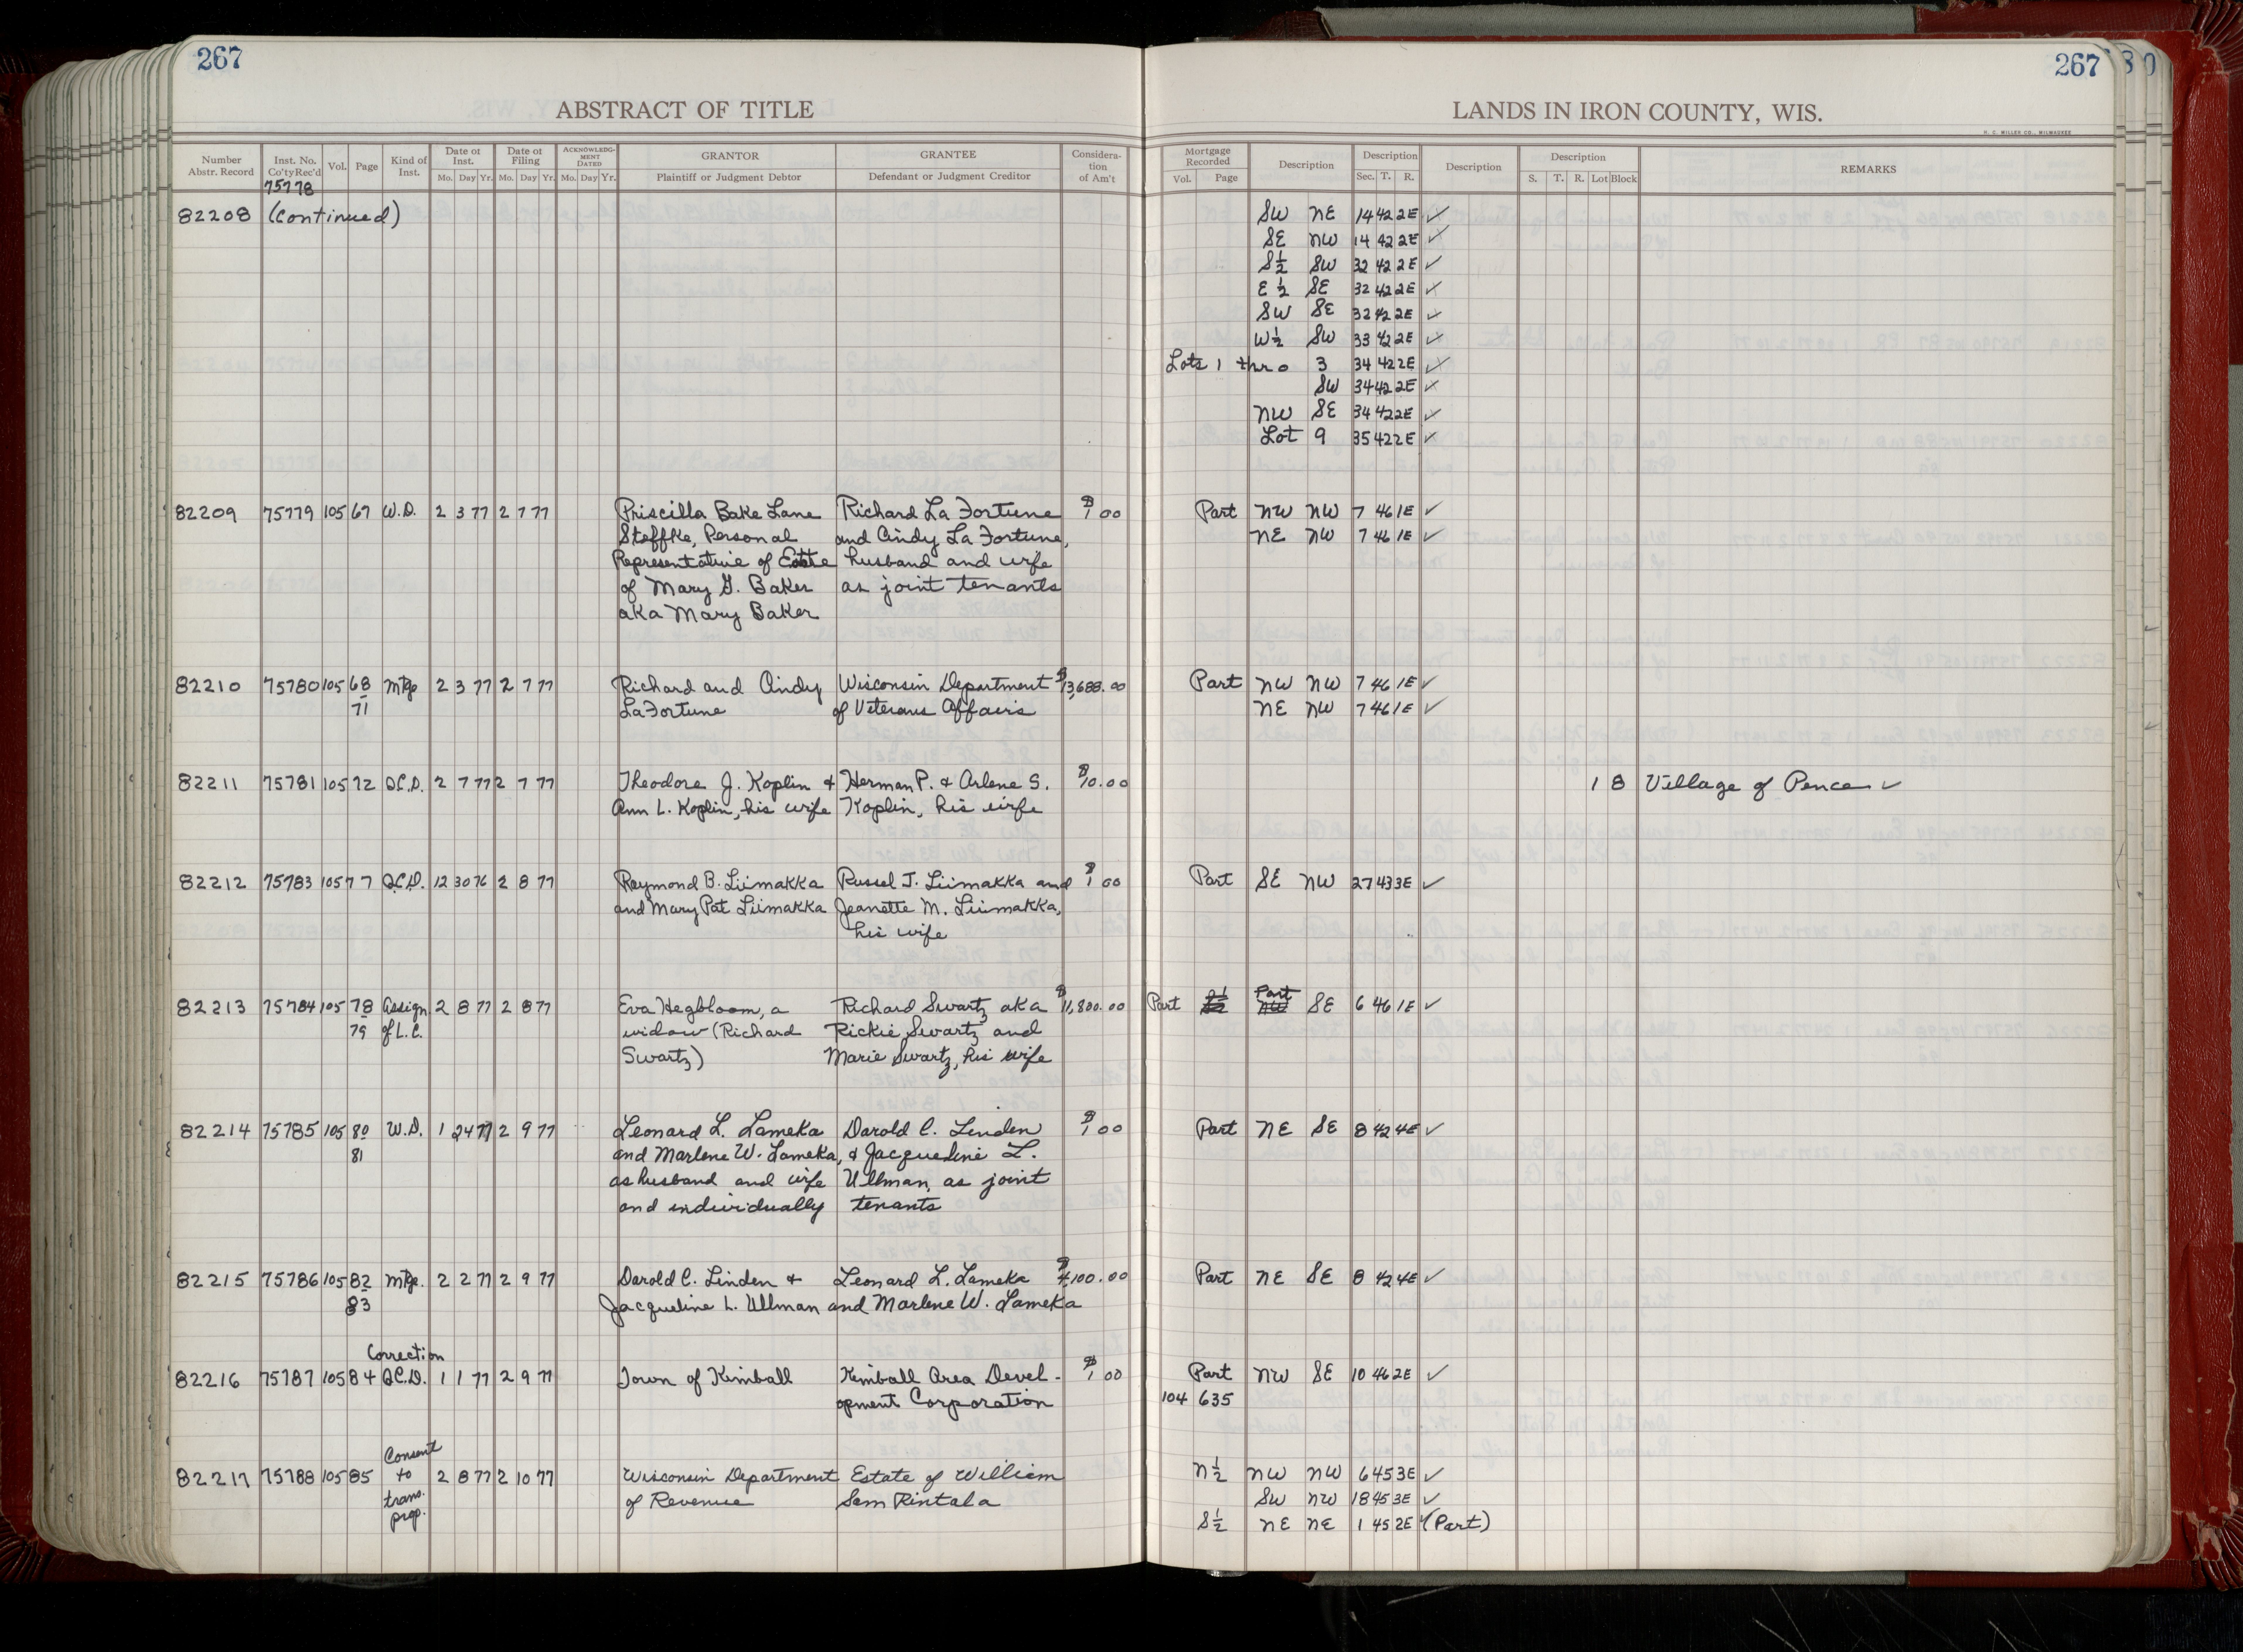 267
267
ABSTRACT OF TITLE
LANDS IN IRON COUNTY, WIS.
H. C. MILLER CO., MILWAUKEE
Number Abstr. Record | Inst. No. Co'ty Rec'd | Vol. | Page | Kind of Inst. | Date of Inst. Mo. Day Yr. | Date of Filing Mo. Day Yr. | ACKNOWLEDGMENT DATED Mo. Day Yr. | GRANTOR Plaintiff or Judgment Debtor | GRANTEE Defendant or Judgment Creditor | Consideration of Am't | Mortgage Recorded Vol. Page | Description | Description Sec. T. R. | Description | Description S. T. R. Lot Block | REMARKS
75778
82208 (Continued) SW NE 14 42 2E ✓
SE NW 14 42 2E ✓
S½ SW 32 42 2E ✓
E½ SE 32 42 2E ✓
SW SE 32 42 2E ✓
W½ SW 33 42 2E ✓
Lots 1 thro 3 34 42 2E ✓
SW 34 42 2E ✓
NW SE 34 42 2E ✓
Lot 9 35 42 2E ✓
82209 75779 105 67 W.D. 2 3 77 2 7 77 Priscilla Bake Lane Richard La Fortune $1 00 Part NW NW 7 46 1E ✓
Steffke, Personal and Cindy La Fortune, NE NW 7 46 1E ✓
Representative of Estate husband and wife
of Mary G. Baker as joint tenants
aka Mary Baker
82210 75780 105 68 Mtge 2 3 77 2 7 77 Richard and Cindy Wisconsin Department $13,688.00 Part NW NW 7 46 1E ✓
71 LaFortune of Veterans Affairs NE NW 7 46 1E ✓
82211 75781 105 72 Q.C.D. 2 7 77 2 7 77 Theodore J. Koplin & Herman P. & Arlene S. $10.00 1 8 Village of Pence ✓
Ann L. Koplin, his wife Koplin, his wife
82212 75783 105 77 Q.C.D. 12 30 76 2 8 77 Raymond B. Liimakka Russel J. Liimakka and $1 00 Part SE NW 27 43 3E ✓
and Mary Pat Liimakka Jeanette M. Liimakka,
his wife
82213 75784 105 78 Assign 2 8 77 2 8 77 Eva Hegbloom, a Richard Swartz aka $11,800.00 Part Part SE 6 46 1E ✓
79 of L.C. widow (Richard Rickie Swartz and
Swartz) Marie Swartz, his wife
82214 75785 105 80 W.D. 1 24 77 2 9 77 Leonard L. Lameka Darold C. Linden $1 00 Part NE SE 8 42 4E ✓
81 and Marlene W. Lameka, & Jacqueline L.
as husband and wife Ullman, as joint
and individually tenants
82215 75786 105 82 Mtge. 2 2 77 2 9 77 Darold C. Linden & Leonard L. Lameka $4,100.00 Part NE SE 8 42 4E ✓
83 Jacqueline L. Ullman and Marlene W. Lameka
Correction
82216 75787 105 84 Q.C.D. 1 1 77 2 9 77 Town of Kimball Kimball Area Devel- $1 00 Part NW SE 10 46 2E ✓
opment Corporation 104 635
Consent
82217 75788 105 85 to 2 8 77 2 10 77 Wisconsin Department Estate of William N½ NW NW 6 45 3E ✓
trans. of Revenue Sem Rintala SW NW 18 45 3E ✓
prop. S½ NE NE 1 45 2E ✓ (Part)